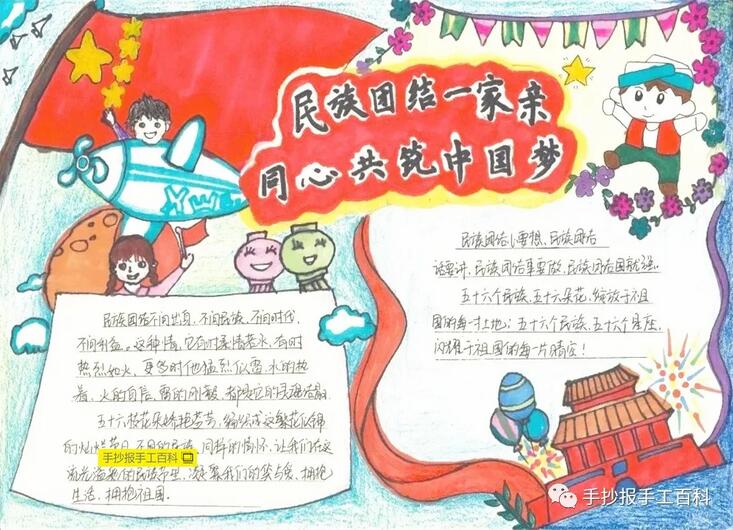 民族团结一家亲
同心共筑中国梦
民族团结心要想、民族团结
话要讲、民族团结事要做、民族团结国就强。
五十六个民族、五十六朵花,绽放于祖
国的每一寸土地;五十六个民族、五十六个星座,
闪耀于祖国的每一片晴空!
民族团结不问出身、不问民族、不问时代、
不问利益。这种情,它有时柔情若水,有时
热烈如火,更多时他猛烈似雷,水的热
着、火的自信、雷的刚毅、都是它的
五十六枝花朵娇艳芬芳,编织成这繁花似锦
的灿烂节日,不同的民族,同样的情怀,让我们在这
的民族节里,凝聚我们的梦与爱,拥抱
生活,拥抱祖国。
手抄报手工百科
手抄报手工百科